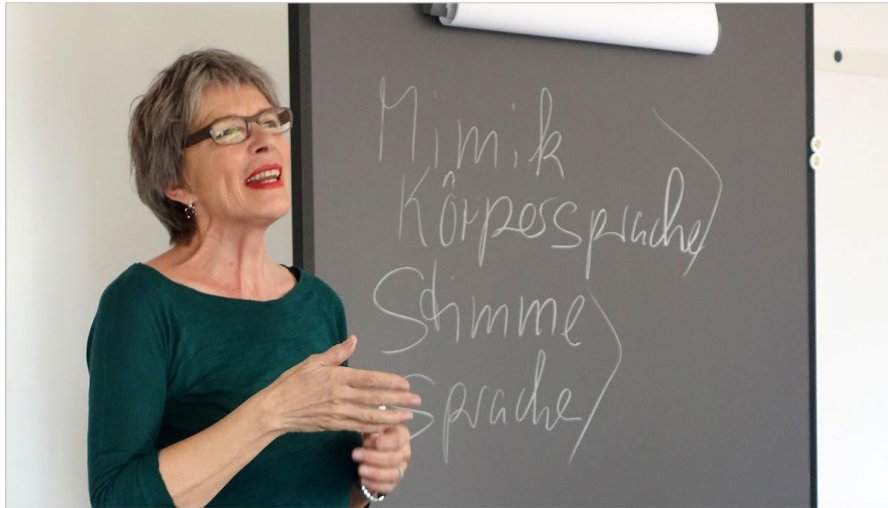 Mimik
Körpersprache
Stimme
Sprache